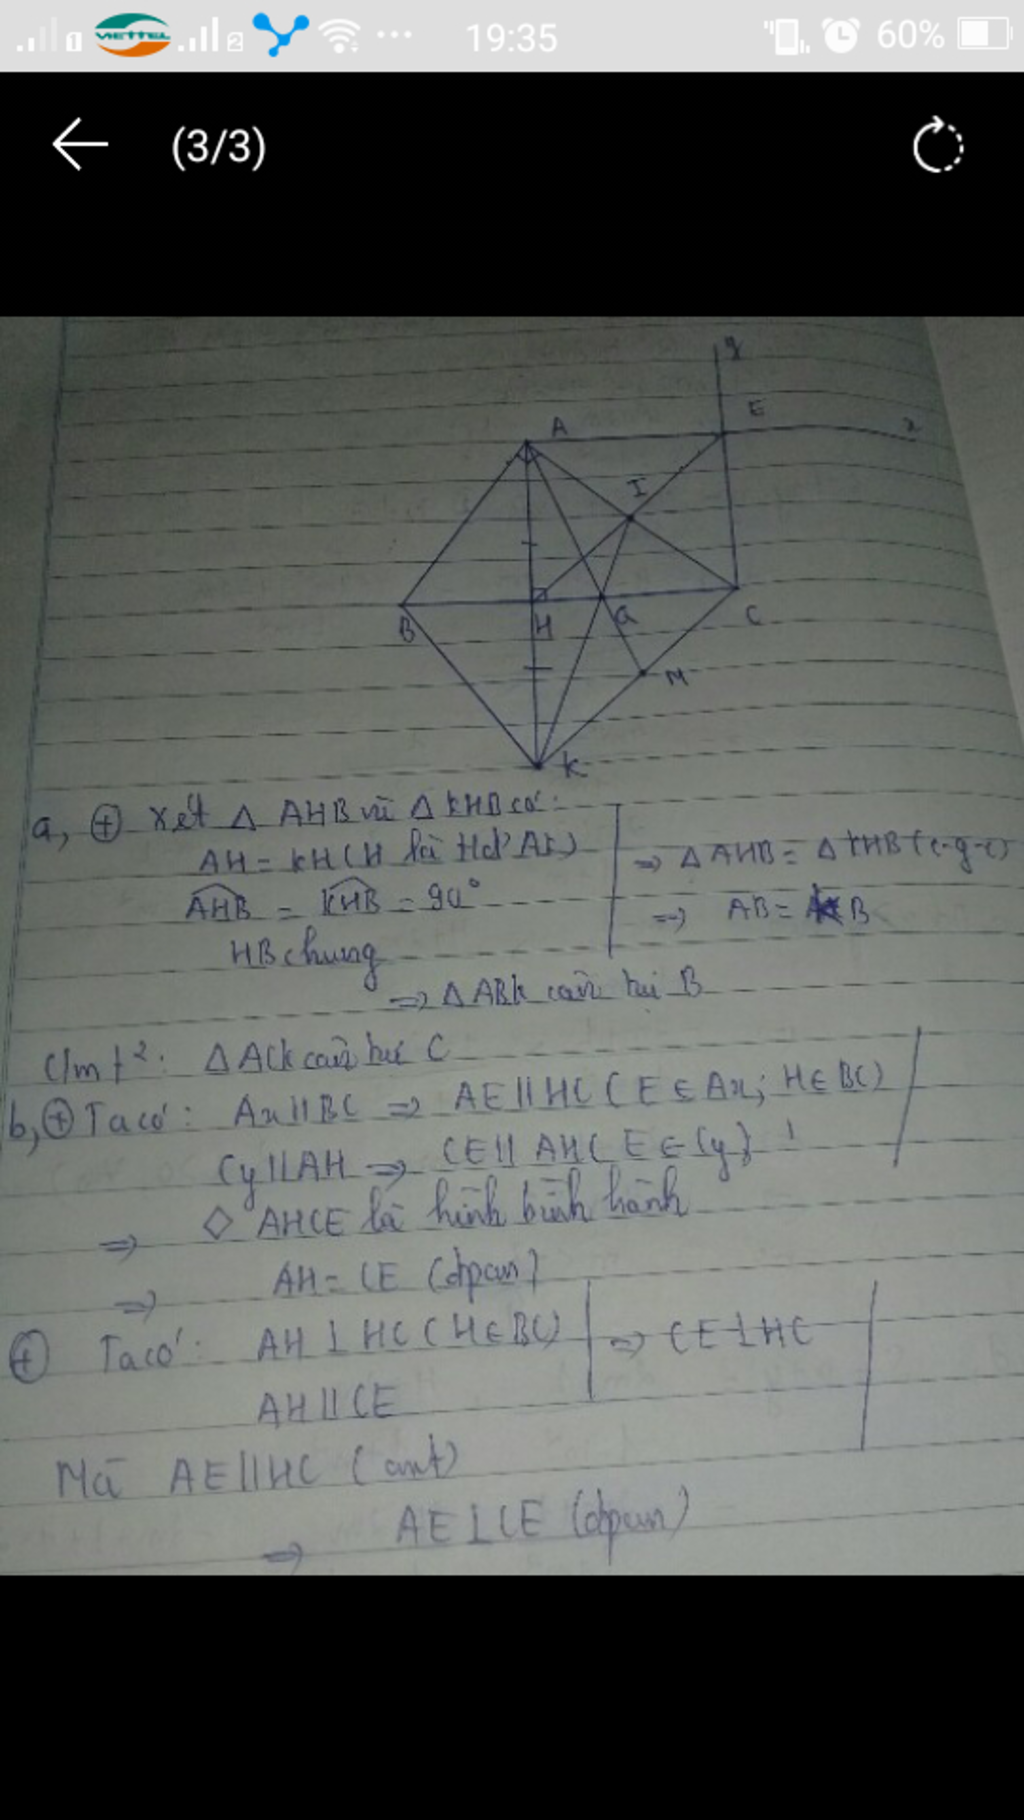 1 VIETTEL 2 ... 19:35 60%
(3/3)
y
A E x
I
B H G C
M
K
a, ⊕ Xét Δ AHB và Δ KHB có:
AH = KH (H là trđ AK)
⇒ Δ AHB = Δ KHB (c-g-c)
AHB = KHB = 90°
⇒ AB = KB
HB chung
⇒ Δ ABK cân tại B
C/m t²: Δ ACK cân tại C
b, ⊕ Ta có: Ax // BC ⇒ AE // HC ( E ∈ Ax; H ∈ BC)
Cy // AH ⇒ CE // AH ( E ∈ Cy)
⇒ ◇ AHCE là hình bình hành
⇒ AH = CE (đpcm)
⊕ Ta có: AH ⊥ HC ( H ∈ BC) ⇒ CE ⊥ HC
AH // CE
Mà AE // HC ( cmt)
⇒ AE ⊥ CE (đpcm)